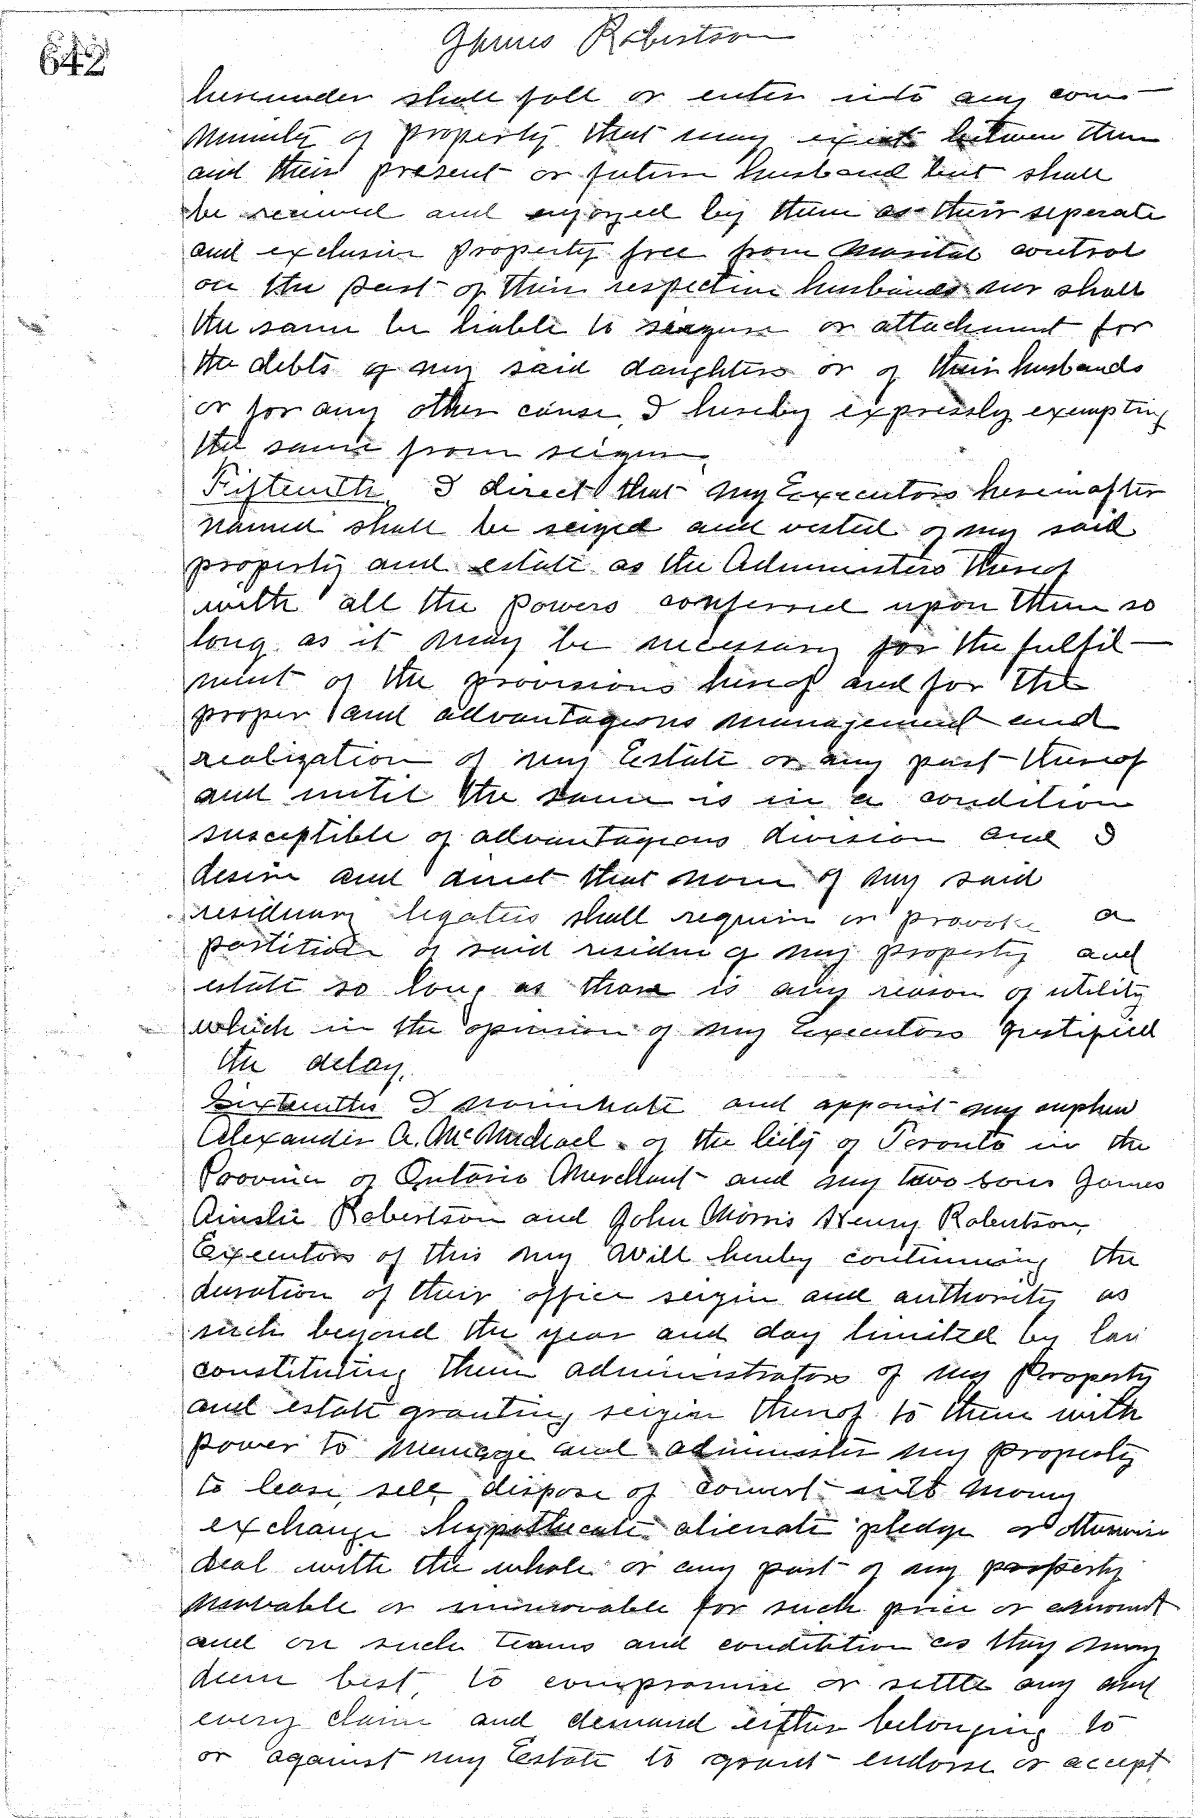 642
James Robertson
hereunder shall fall or enter into any com—
munity of property that may exist between them
and their present or future husband but shall
be received and enjoyed by them as their seperate
and exclusive property free from marital control
on the part of their respective husbands nor shall
the same be liable to seizure or attachment for
the debts of my said daughters or of their husbands
or for any other cause, I hereby expressly exempting
the same from seizure.
Fifteenth I direct that my Executors hereinafter
named shall be seized and vested of my said
property and estate as the Administers thereof
with all the powers conferred upon them so
long as it may be necessary for the fulfil—
ment of the provisions hereof and for the
proper and advantageous management and
realization of my Estate or any part thereof
and until the same is in a condition
susceptible of advantageous division and I
desire and direct that none of my said
residuary legatees shall require or provoke a
partition of said residue of my property and
estate so long as there is any reason of utility
which in the opinion of my Executors justified
the delay.
Sixteenths I nominate and appoint my nephew
Alexander A. McMichael of the City of Toronto in the
Province of Ontario Merchant and my two sons James
Ainslie Robertson and John Morris Henry Robertson,
Executors of this my Will hereby continuing the
duration of their office seizin and authority as
such beyond the year and day limited by law
constituting them administrators of my Property
and estate granting seizin thereof to them with
power to manage and administer my property
to lease, sell, dispose of convert into money
exchange hypothecate alienate pledge or otherwise
deal with the whole or any part of my property
movable or immovable for such price or amount
and on such terms and condition as they may
deem best, to compromise or settle any and
every claim and demand either belonging to
or against my Estate to grant endorse or accept